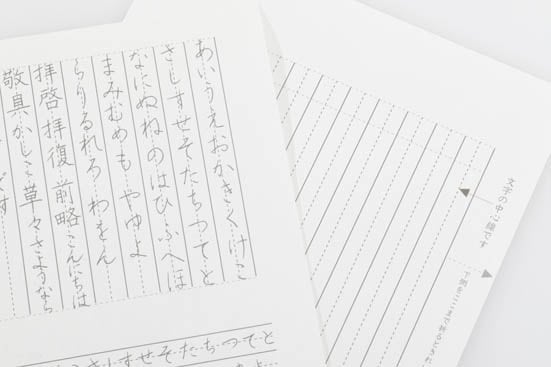 あいうえおかきくけこ
さしすせそたちつてと
なにぬねのはひふへほ
まみむめも やゆよ
らりるれろ わをん
拝啓 拝復 前略 こんにちは
敬具 かしこ 草々 さようなら
です
さしすせそたちつてと
文字の中心線です